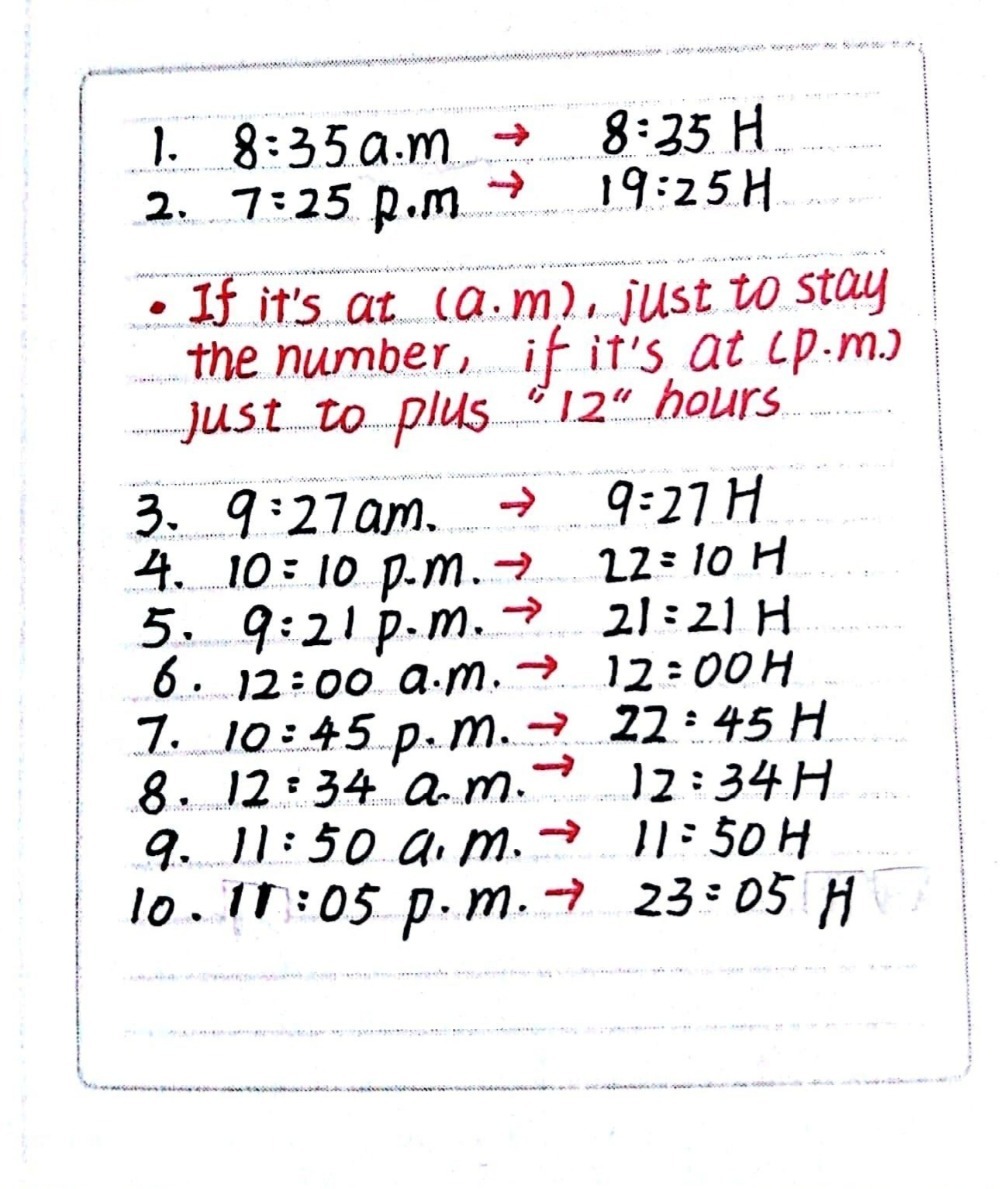 1. 8:35 a.m → 8:35 H
2. 7:25 p.m → 19:25 H
• If it's at (a.m), just to stay
the number, if it's at (p.m.)
just to plus "12" hours
3. 9:27 am. → 9:27 H
4. 10:10 p.m. → 22:10 H
5. 9:21 p.m. → 21:21 H
6. 12:00 a.m. → 12:00 H
7. 10:45 p.m. → 22:45 H
8. 12:34 a.m. → 12:34 H
9. 11:50 a.m. → 11:50 H
10. 11:05 p.m. → 23:05 H